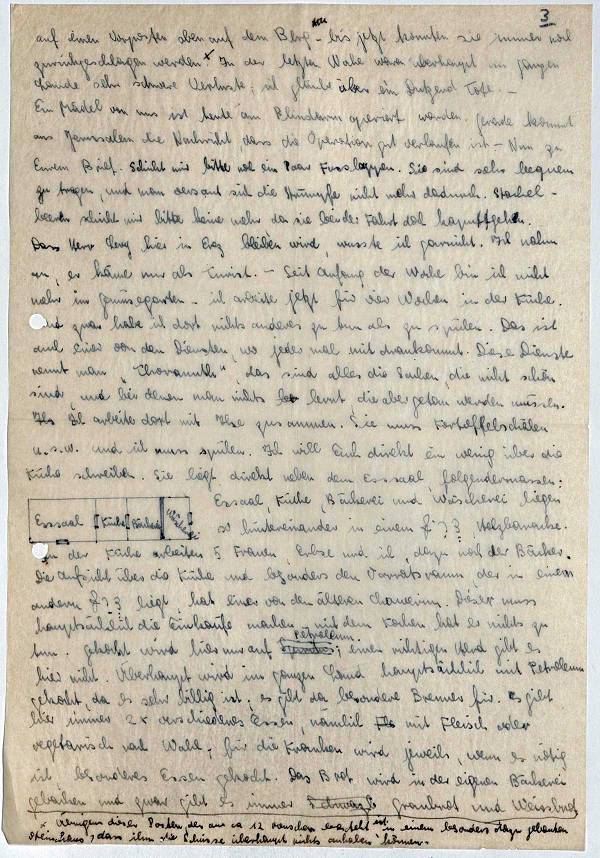 3
auf einen Vorposten oben auf dem Berg – bis jetzt konnten sie immer noch
zurückgeschlagen werden x In der letzten Woche waren überhaupt im ganzen
Lande sehr schwere Verluste, ich glaube über ein Dutzend Tote. –
Ein Mädel von uns ist heute am Blinddarm operiert worden. Gerade kommt
aus Jerusalem die Nachricht, dass die Operation gut verlaufen ist – Nun zu
Eurem Brief. Schickt mir bitte noch ein Paar Fusslappen. Sie sind sehr bequem
zu tragen, und man versaut sich die Strümpfe nicht mehr dadurch. Stachel-
beeren schickt mir bitte keine mehr da sie bei der Fahrt doch kaputtgehen.
Dass Herr Levy hier in Erez bleiben wird, wusste ich garnicht. Ich nahm
an, er käme nur als Turist. – Seit Anfang der Woche bin ich nicht
mehr im Gemüsegarten. ich arbeite jetzt für vier Wochen in der Küche.
Und zwar habe ich dort nichts anderes zu tun als zu spülen. Das ist
auch einer von den Diensten, wo jeder mal mit drankommt. Diese Dienste
nennt man "Thoranuth", das sind alles die Sachen, die nicht schön
sind, und bei denen man nichts lernt die aber getan werden müssen.
Ich arbeite dort mit Ilse zusammen. Sie muss Kartoffelschälen
u.s.w. und ich muss spülen. Ich will Euch direkt ein wenig über die
Küche schreiben. Sie liegt direkt neben dem Esssaal folgendermassen:
Esssaal Küche Bäckerei Wäscherei
Esssaal, Küche, Bäckerei und Wäscherei liegen
so hintereinander in einem Holzbaracke.
In der Küche arbeiten 5 Frauen, und ich, dazu noch der Bäcker.
Die Aufsicht über die Küche und besonders den Vorratsraum, der in einem
andern liegt, hat einer von den älteren Chawerim. Dieser muss
hauptsächlich die Einkäufe machen, mit dem Kochen hat er nichts zu
tun. Gekocht wird hier nur auf Petroleum; einen richtigen Herd gibt es
hier nicht. Überhaupt wird im ganzen Land hauptsächlich mit Petroleum
gekocht, da es sehr billig ist; es gibt da besondere Brenner für. Es gibt
hier immer 2x verschiedenes Essen, nämlich mit Fleisch oder
vegetarisch nach Wahl; für die Kranken wird jeweils, wenn es nötig
ist, besonderes Essen gekocht. Das Brot wird in der eigenen Bäckerei
gebacken und zwar gibt es immer Graubrot und Weissbrot
x Übrigens dieser Posten, der aus ca 12 Menschen besteht ist in einem besonders dazu gebauten
Steinhaus, dass ihm die Schüsse überhaupt nichts anhaben können.